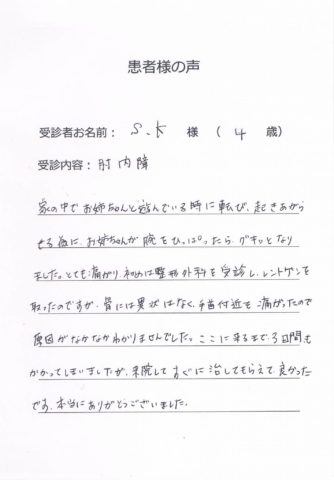 患者様の声
受診者お名前： S.K 様 （ 4 歳）
受診内容：肘内障
家の中でお姉ちゃんと遊んでいる時に転び、起きあがら
せる為に、お姉ちゃんが腕をひっぱったら、グキッとなり
ました。とても痛がり、初めは整形外科を受診し、レントゲンを
取ったのですが、骨には異状はなく、手首付近も痛がったので
原因がなかなかわかりませんでした。ここに来るまで、3日間も
かかってしまいましたが、来院してすぐに治してもらえて、良かった
です。本当にありがとうございました。